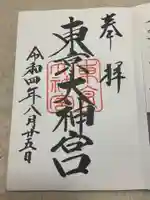 奉拝
東京大神宮
令和四年八月廿五日